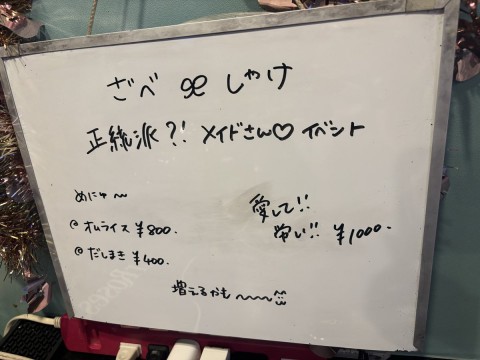 ざべ ꕤ しゃけ
正統派?! メイドさん♡ イベント
めにゅ〜
@ オムライス ¥800.
@ だしまき ¥400.
愛して!!
¥1000.
増えるかも〜〜〜